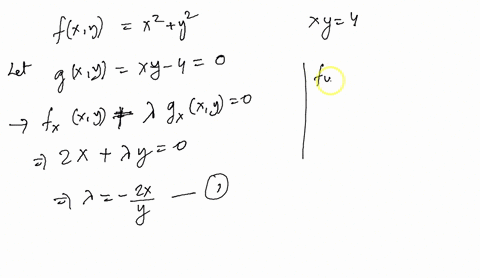 f(x,y) = x² + y²
xy = 4
Let g(x,y) = xy - 4 = 0
→ fₓ (x,y) + λ gₓ (x,y) = 0
⇒ 2x + λy = 0
⇒ λ = - 2x/y — ①